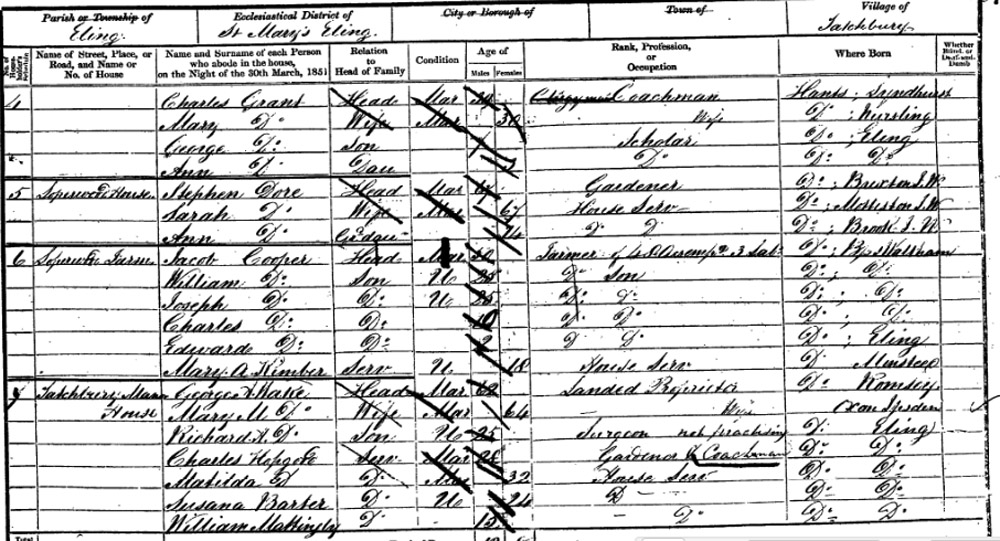 Parish or Township of Ecclesiastical District of City or Borough of Town of Village of
Eling St Mary's Eling Tatchbury
No. of House-holder's Schedule Name of Street, Place, or Road, and Name or No. of House Name and Surname of each Person who abode in the house, on the Night of the 30th March, 1851 Relation to Head of Family Condition Age of Males Females Rank, Profession, or Occupation Where Born Whether Blind, or Deaf-and-Dumb
4 Charles Grant Head Mar Clergyman Coachman Hants; Lyndhurst
Mary Do Wife Mar 30 Wife Do; Nursling
George Do Son Scholar Do; Eling
Ann Do Dau Do Do: Do
5 House Stephen Dore Head Mar Gardener Do; Brixton I.W
Sarah Do Wife Mar 67 House Serv Do; Mottiston I.W
Ann Do Gdau 14 D D Do; Brook I.W
6 Jacob Cooper Head Mar Farmer of Do; Bps Waltham
William Do Son U Do Son Do; Do
Joseph Do Do U Do Do Do; Do
Charles Do Do: 10 D Do Do; Do
Edward Do: Do: 2 D Do Do; Eling
Mary A Kimber Serv U 18 House Serv Do Minstead
7 Tatchbury Manr House George A Wake Head Mar 62 Landed Proprietor Do Romsey
Mary M. Do Wife Mar 64 Wife Oxon
Richard A. Do Son U 25 Surgeon not practising D: Eling
Charles Serv Mar 28 Gardener & Coachman Do: Do:
Matilda D Do Mar 32 House Serv Do Do
Susana Barter Do U 24 D Do Do
William Mattingly Do 15 Do Do Do
Total